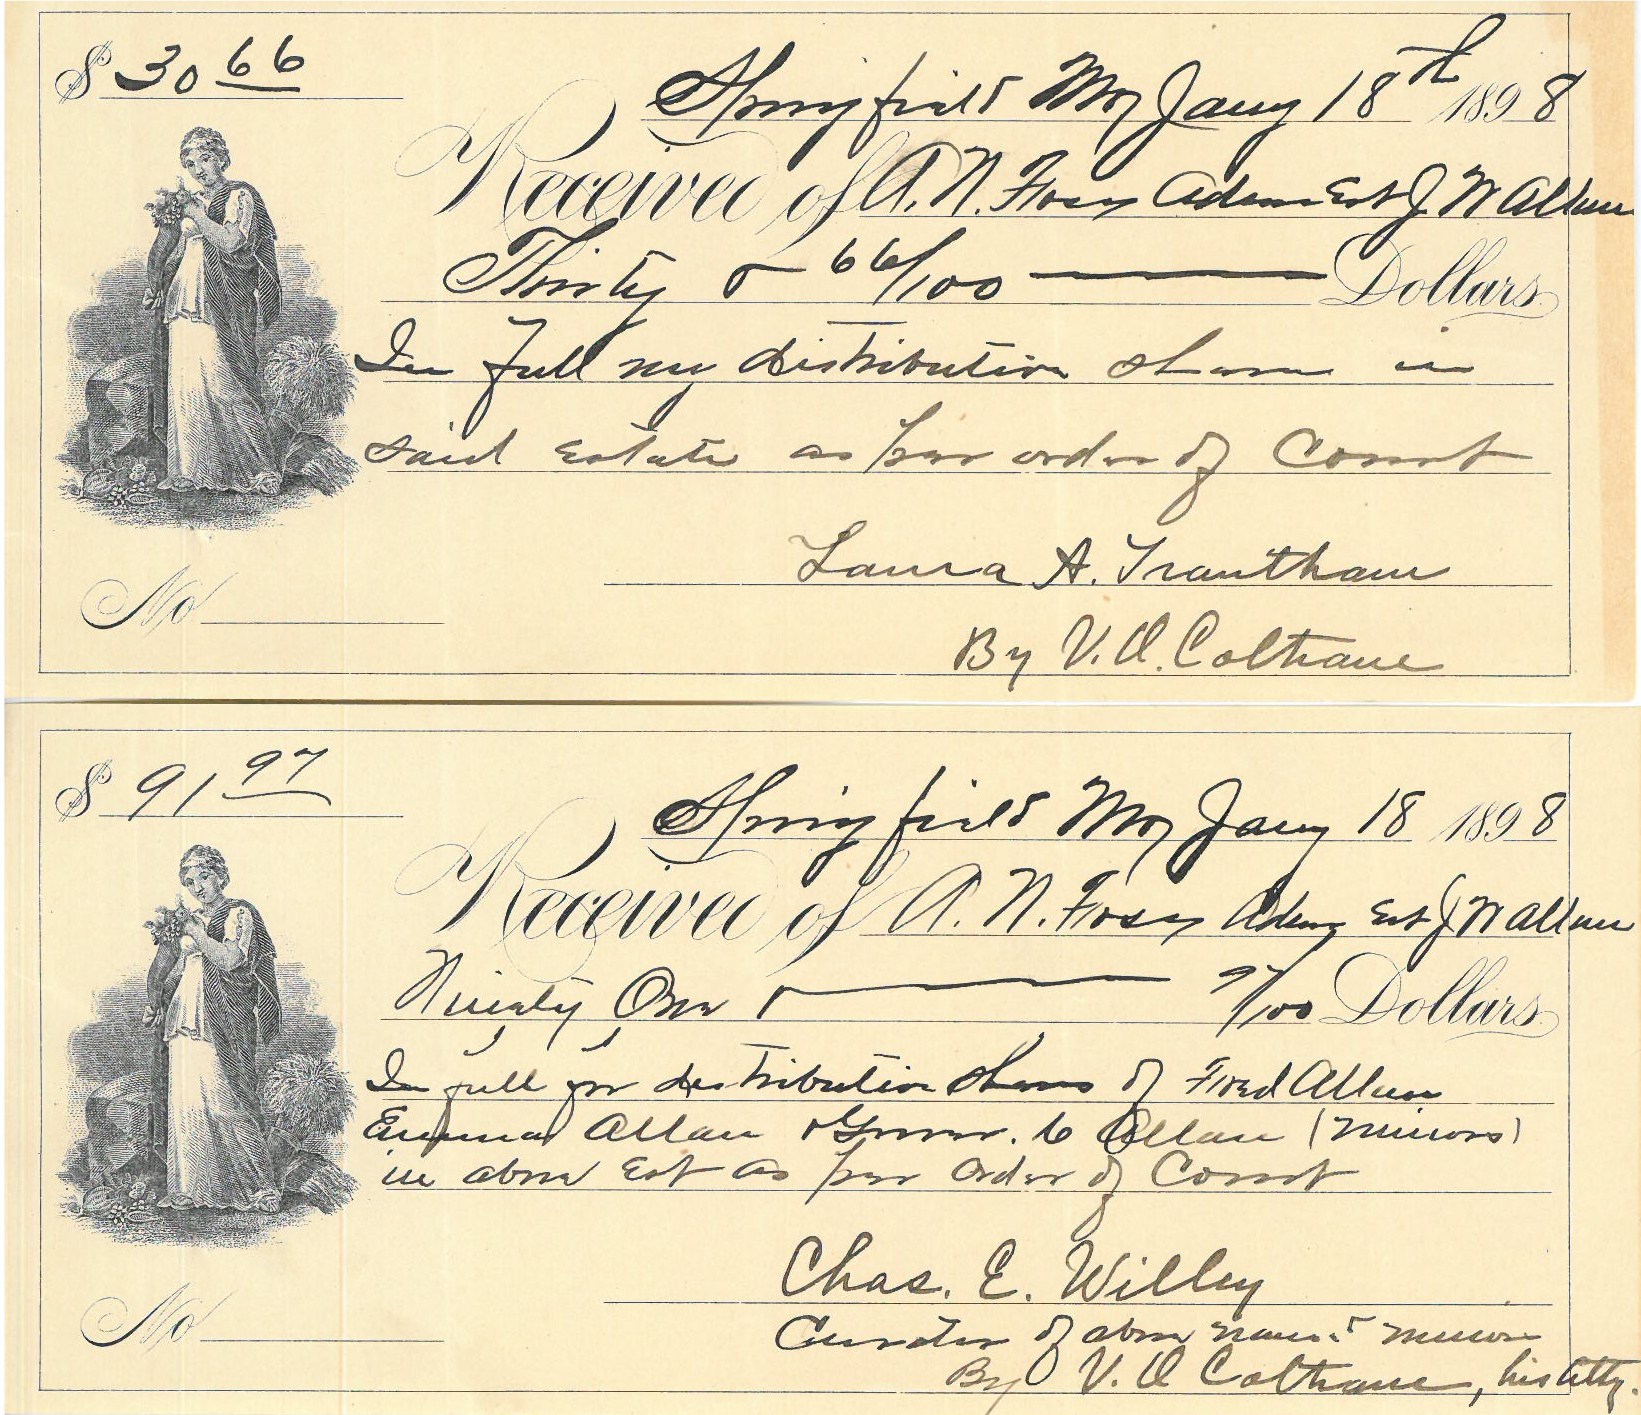 $ 30 66
Springfield Mo Jany 18th 1898
Received of A. N. Admr Est J W Allan
Thirty & 66/100 Dollars
In full my distribution share in
said Estate as per order of Court
Laura A. Trantham
No
By V. O. Coltrane
$ 91 97
Springfield Mo Jany 18 1898
Received of A. N. Admr Est J W Allan
Ninety One & 97/100 Dollars
In full for distribution shares of Fred Allan
Emma Allan & Allan (minors)
in above Est as per order of Court
Chas. E. Willey
No
Curator of above named minors
By V. O. Coltrane, his Atty.